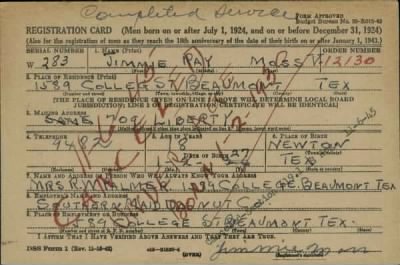 Completed Service
FORM APPROVED
Budget Bureau No. 33-R012-42
REGISTRATION CARD (Men born on or after July 1, 1924, and on or before December 31, 1924)
(Also for the registration of men as they reach the 18th anniversary of the date of their birth on or after January 1, 1943.)
SERIAL NUMBER 1. NAME (Print) ORDER NUMBER
W 283 JIMMIE RAY MOSS 12130
2. PLACE OF RESIDENCE (Print)
1589 COLLEGE ST BEAUMONT TEX
[THE PLACE OF RESIDENCE GIVEN ON LINE 2 ABOVE WILL DETERMINE LOCAL BOARD
JURISDICTION; LINE 2 OF REGISTRATION CERTIFICATE WILL BE IDENTICAL]
3. MAILING ADDRESS
SAME 1709 LIBERTY
CANCELLED
4. TELEPHONE 5. AGE IN YEARS 6. PLACE OF BIRTH
9482 18 NEWTON
DATE OF BIRTH
TEX
7. NAME AND ADDRESS OF PERSON WHO WILL ALWAYS KNOW YOUR ADDRESS
MRS. R. M. PALMER COLLEGE. BEAUMONT TEX
8. EMPLOYER'S NAME AND ADDRESS
SOUTHERN MAID DONUT CO.
9. PLACE OF EMPLOYMENT OR BUSINESS
1589 COLLEGE ST BEAUMONT TEX.
I AFFIRM THAT I HAVE VERIFIED ABOVE ANSWERS AND THAT THEY ARE TRUE.
DSS Form 1 (Rev. 11-16-42) (OVER) Jimmie Moss
(Registrant's signature)